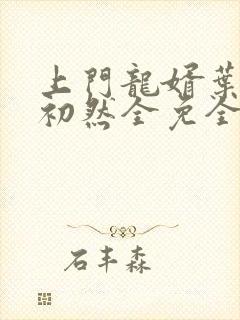 上門龍婿葉
初然全免全
石丰森